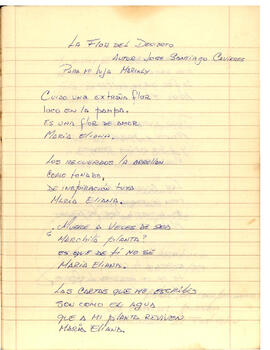 La Flor del Desierto
Autor: Jose Santiago Caviedes
Para mi hija Marialy
Cuido una extraña flor
loco en la pampa.
Es una flor de amor.
María Eliana.
Los recuerdos la arrollan
como tonada,
de inspiración tuya
María Eliana.
¿Muere a veces de sed
marchita planta?
Es que de ti no sé
María Eliana.
Las cartas que me escribes
son como el agua
que a mi planta reviven
María Eliana.